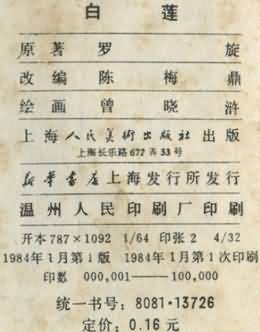 白莲
原著 罗旋
改编 陈梅鼎
绘画 曾晓浒
上海人民美術出版社出版
上海长乐路 672 弄 33 号
新华書店上海发行所发行
温州人民印刷厂印刷
开本 787×1092 1/64 印张 2 4/32
1984年1月第1版 1984年1月第1次印刷
印数 000,001——100,000
统一书号: 8081·13726
定价: 0.16 元